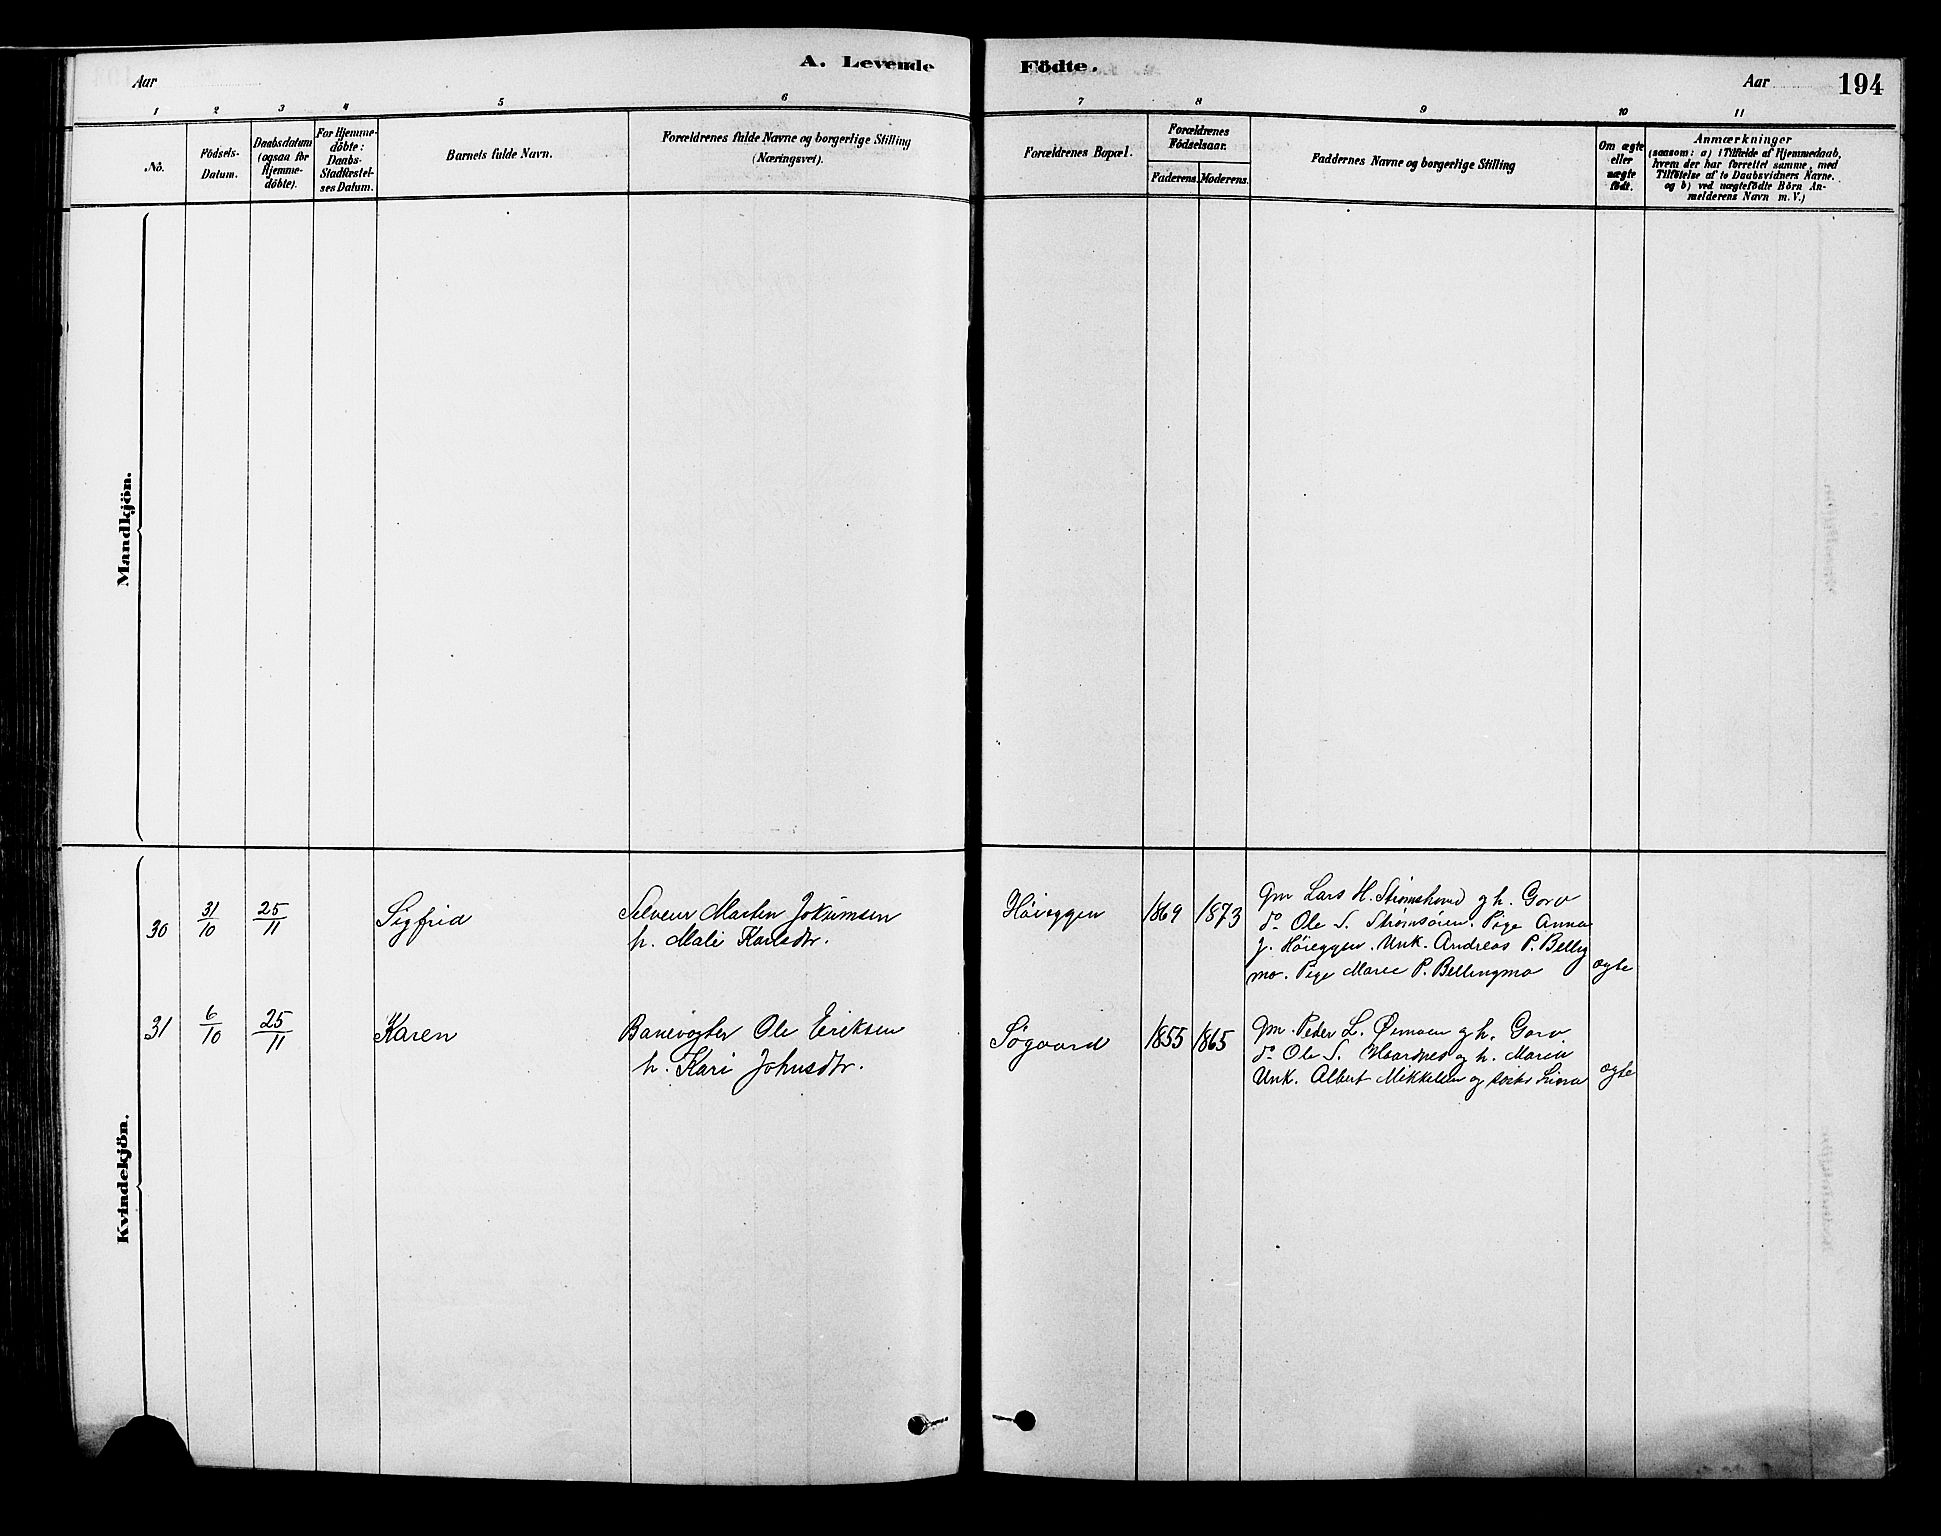 A. Levende Födte.
Aar
Aar
194
1 2 3 4 5 6 7 8 9 10 11
No.
Födsels-
Datum.
Daabsdatum
(ogsaa for
Hjemme-
döbte).
For Hjemme-
döbte:
Daabs-
Stadfæstel-
ses Datum.
Barnets fulde Navn.
Forældrenes fulde Navne og borgerlige Stilling
(Næringsvei).
Forældrenes Bopæl.
Forældrenes
Födselsaar.
Faderens. Moderens.
Faddernes Navne og borgerlige Stilling
Om ægte
eller
uægte
födt.
Anmærkninger
(saasom: a) i Tilfælde af Hjemmedaab,
hvem der har forrettet samme, med
Tilföielse af to Daabsvidners Navne.
og b) ved uægtefödte Börn An-
melderens Navn m. V.)
Mandkjön.
Kvindekjön.
30
31/10
25/11
Sigfrid
Martin Jokumsen
h. Mali Karlsdtr.
Høieggen
1869
1873
Gm Lars H. Strømshend og h. Goro
do Ole S. Strømsöien. Pige Anna
J. Høieggen. Unk. Andreas P. Belling
mo. Pige Marie P. Bellingmo
ægte
31
6/10
25/11
Karen
Banevogter Ole Eriksen
h. Kari Johnsdtr.
Søgaard
1855
1865
Gm. Peder L. Øimoen og h. Goro.
do Ole S. og h. Maria
Unk. Albert Mikkelsen og
ægte